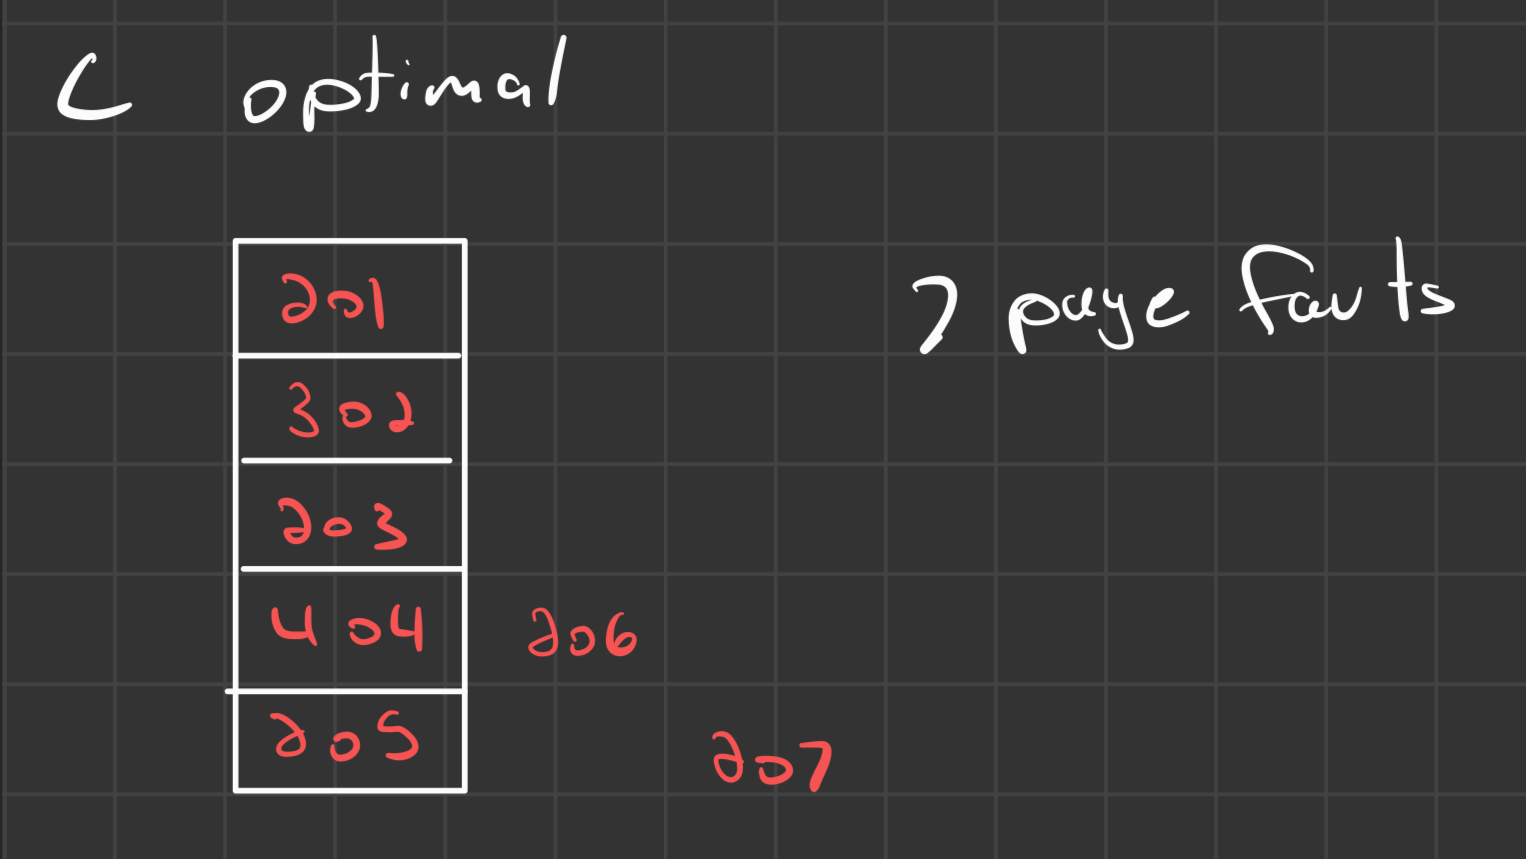 C optimal
201
7 page faults
302
203
404 206
205 207